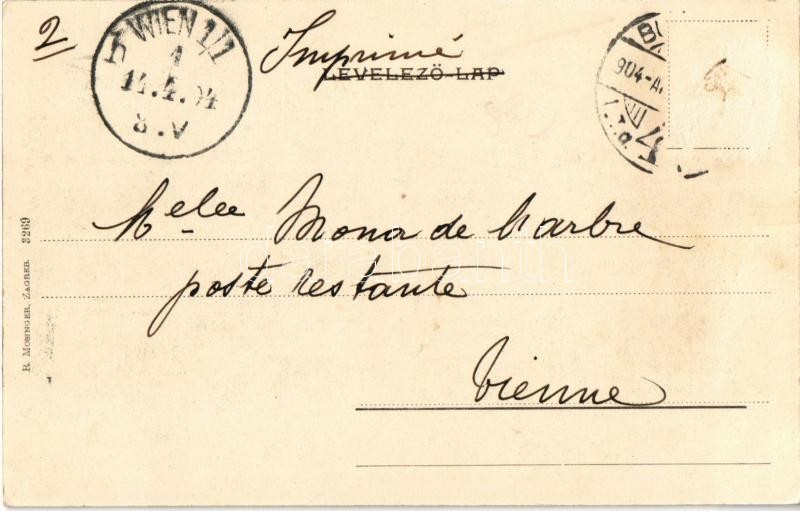 2
WIEN 1/1
1
14.4.04
8.V
Imprimé
LEVELEZŐ-LAP
904
Melle Mona de Marbre
poste restante
Vienne
R. MOSINGER, ZAGREB. 3269
darabanth